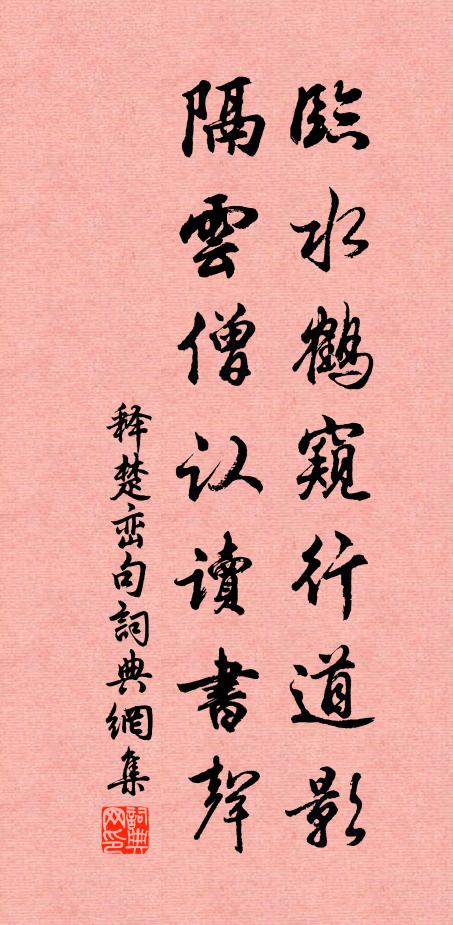 臨水鶴窺行道影
隔雲僧认讀書聲
释楚峦句詞典網集
詞典网印